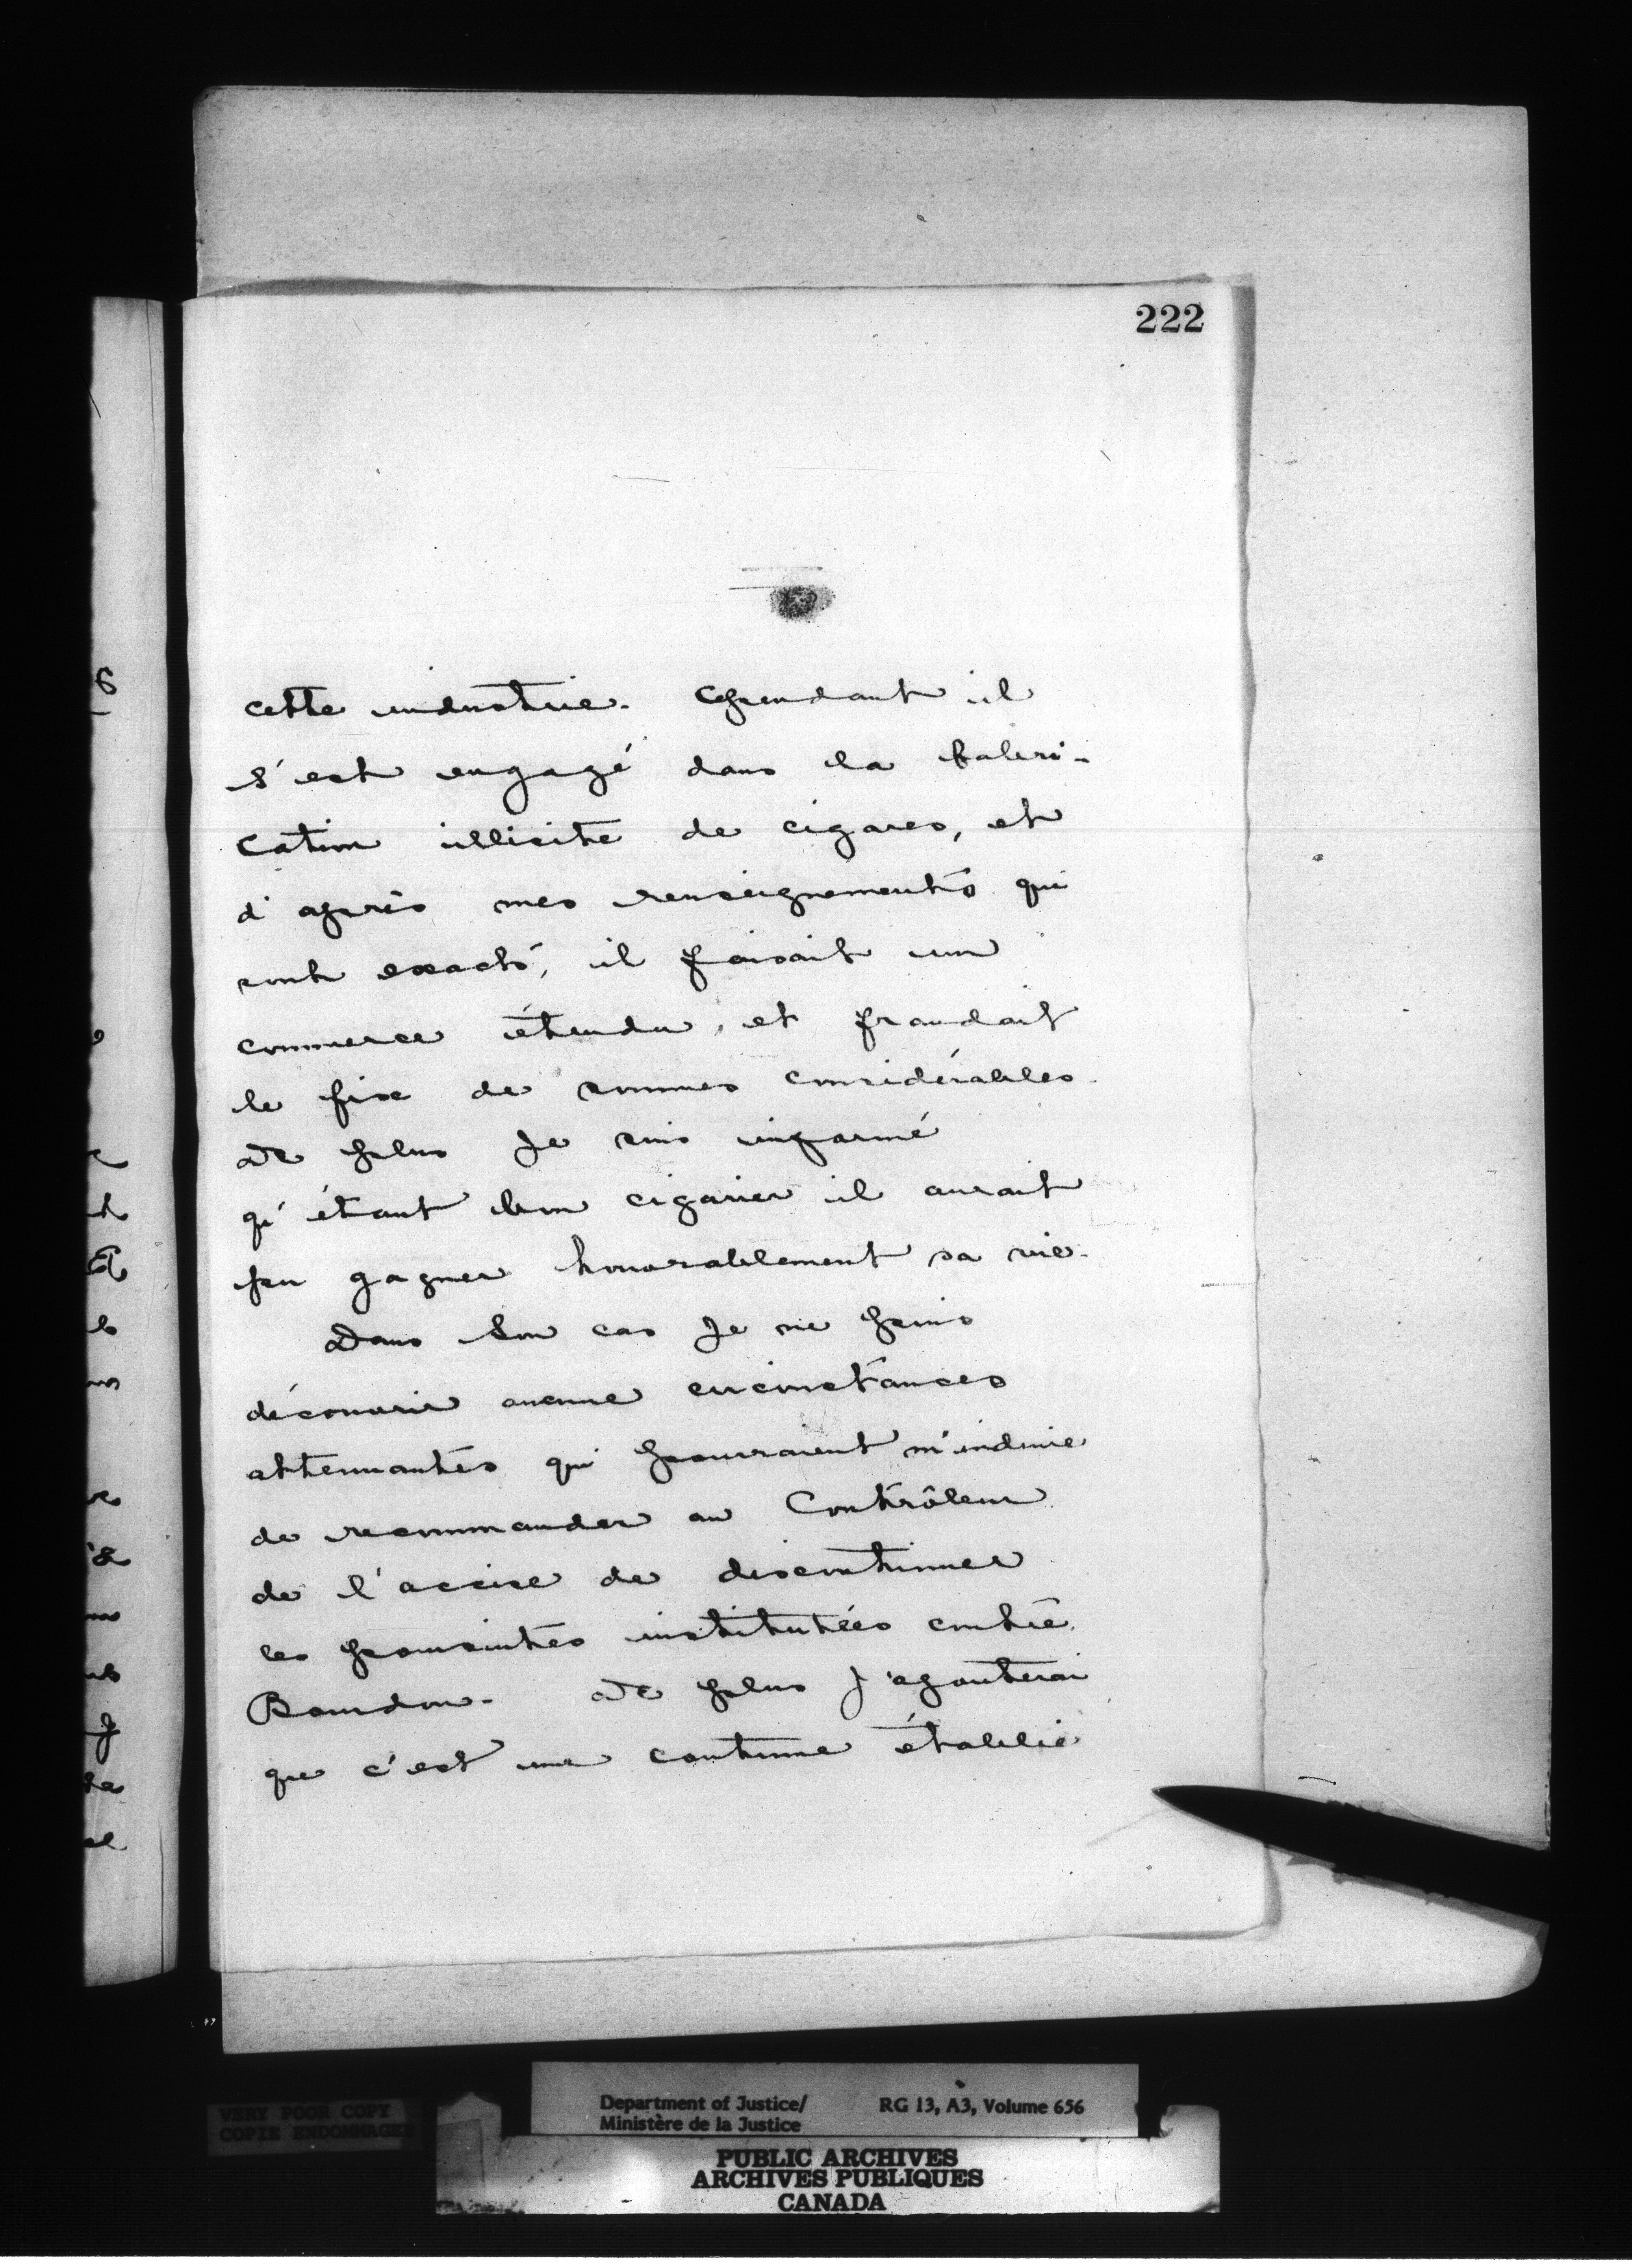 222
cette industrie. Cependant il
s'est engagé dans la fabri-
cation illicite de cigares, et
d'après mes renseignements qui
sont exacts, il faisait un
commerce étendu, et fraudait
le fisc de sommes considérables.
De plus je suis informé
qu'étant bon cigarier il aurait
pu gagner honorablement sa vie.
Dans son cas je ne puis
découvrir aucune circonstances
attenuantes qui pourraient m'induire
de recommander au Contrôleur
de l'accise de discontinuer
les poursuites instituées contre
Bourdon. De plus j'ajouterai
que c'est une coutume établie
VERY POOR COPY
COPIE ENDOMMAGEE
Department of Justice/ RG 13, A3, Volume 656
Ministère de la Justice
PUBLIC ARCHIVES
ARCHIVES PUBLIQUES
CANADA